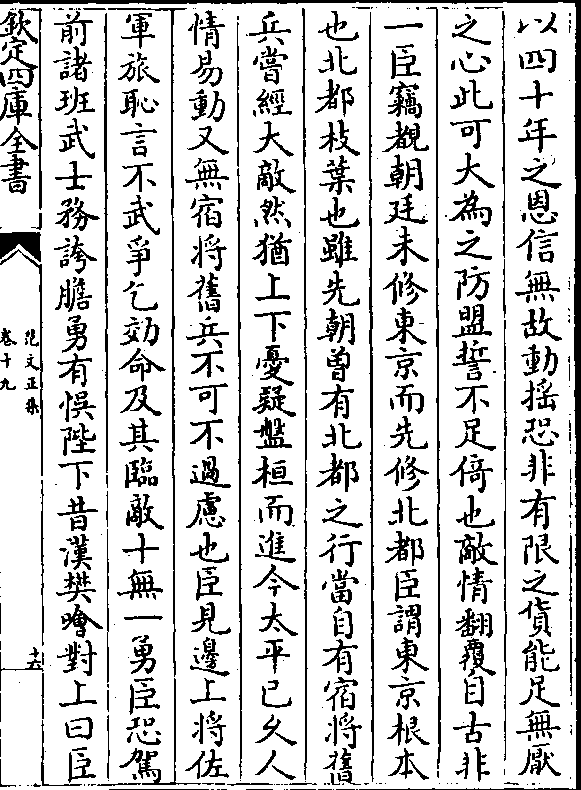 以四十年之恩信無故動揺恐非有限之貨能足無厭
之心此可大為之防盟誓不足倚也敵情翻覆自古非
一臣竊覩朝廷未修東京而先修北都臣謂東京根本
也北都枝葉也雖先朝曽有北都之行當自有宿將舊
兵嘗經大敵然猶上下憂疑盤桓而進今太平已久人
情易動又無宿将舊兵不可不過慮也臣見邊上將佐
軍旅恥言不武爭乞効命及其臨敵十無一勇臣恐駕
前諸班武士務誇膽勇有悞陛下昔漢樊噲對上曰臣
欽定四庫全書
范文正集
卷十九
十六